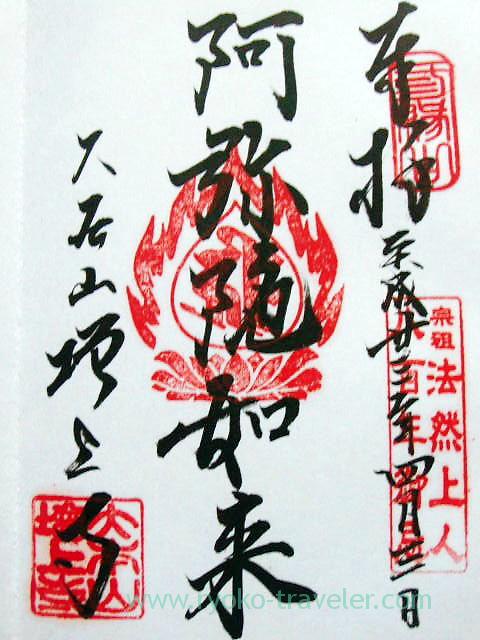 奉拝
平成廿三年四月廿三日
宗祖法然上人
阿弥陀如来
大本山増上寺
www.ryoko-traveler.com